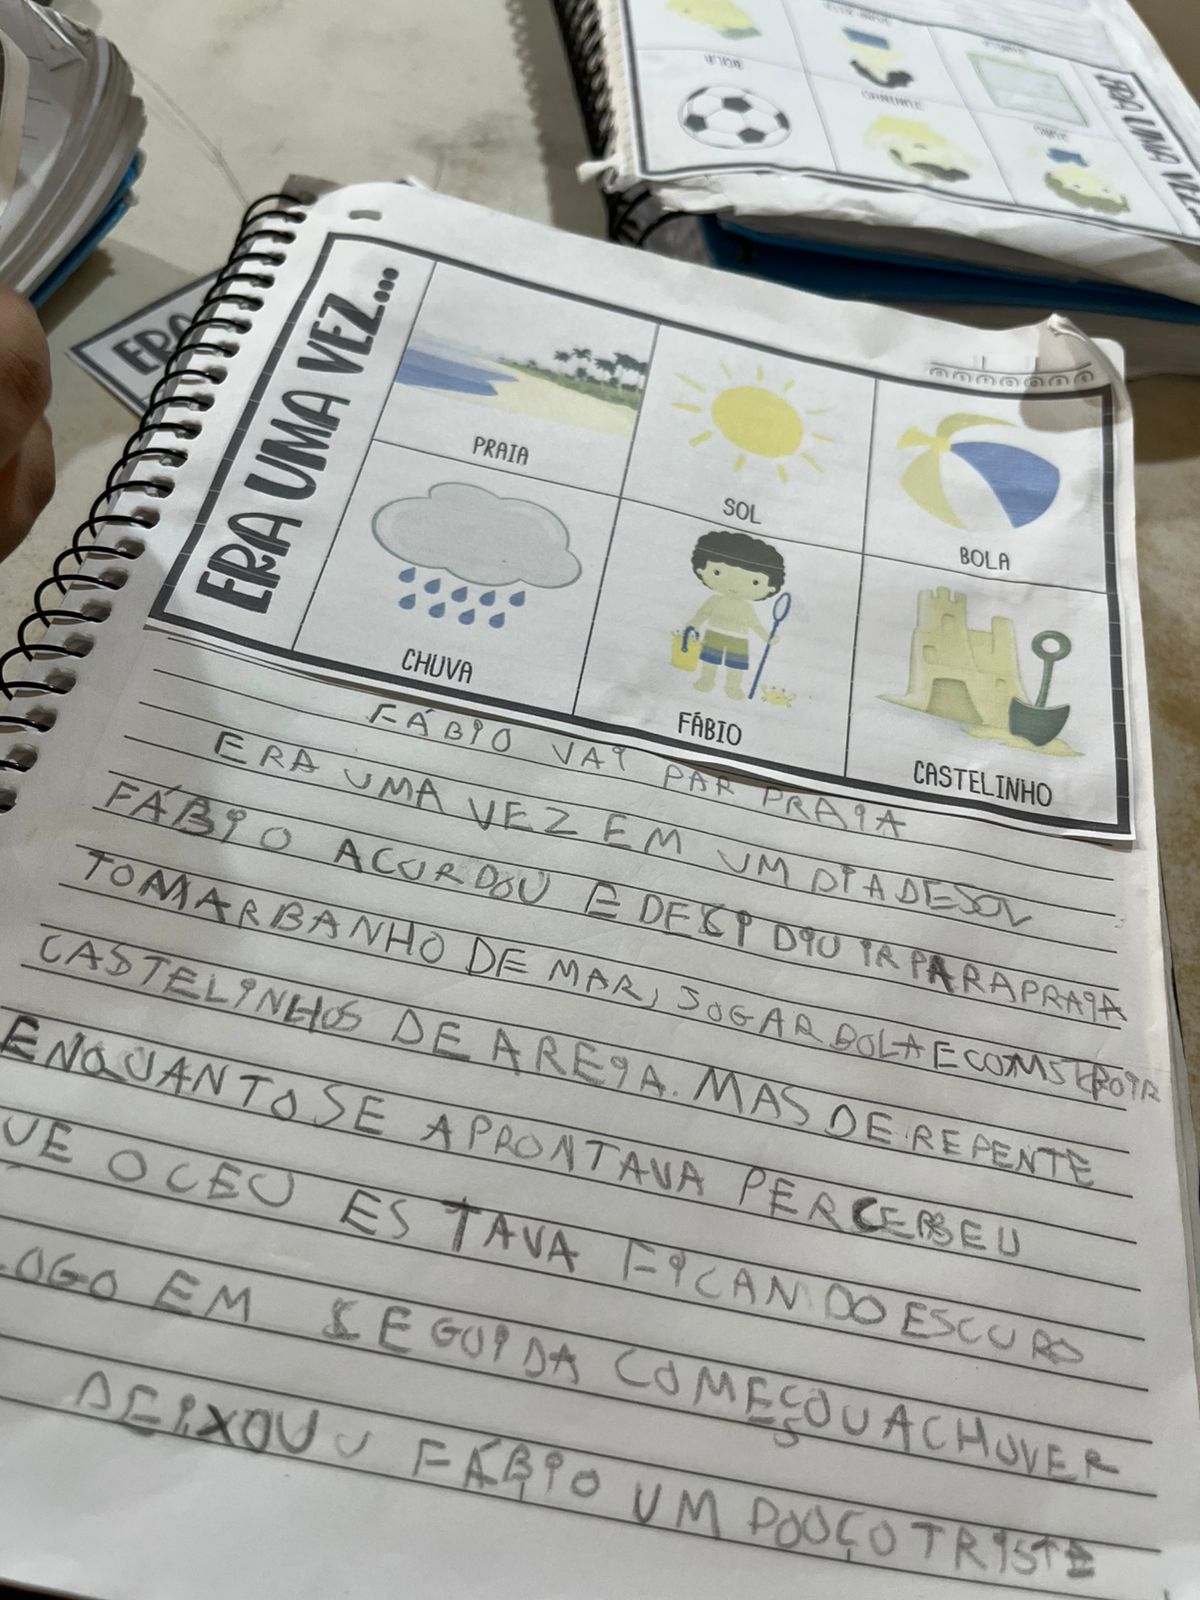 ERA UMA VEZ...
PRAIA
SOL
BOLA
CHUVA
FÁBIO
CASTELINHO
FÁBIO VAI PAR PRAIA
ERA UMA VEZ EM UM DIA DE SOL
FÁBIO ACURDOU E DECIDIU IR PARA PRAIA
TOMAR BANHO DE MAR, JOGAR BOLA E COMSTROIR
CASTELINHOS DE AREIA. MAS DE REPENTE
ENQUANTO SE APRONTAVA PERCEBEU
UE O CEU ESTAVA FICANDO ESCURO
LOGO EM SEGUIDA COMEÇOU A CHUVER
DEIXOU U FÁBIO UM POUÇO TRISTE
BOLA
ERA UMA VEZ